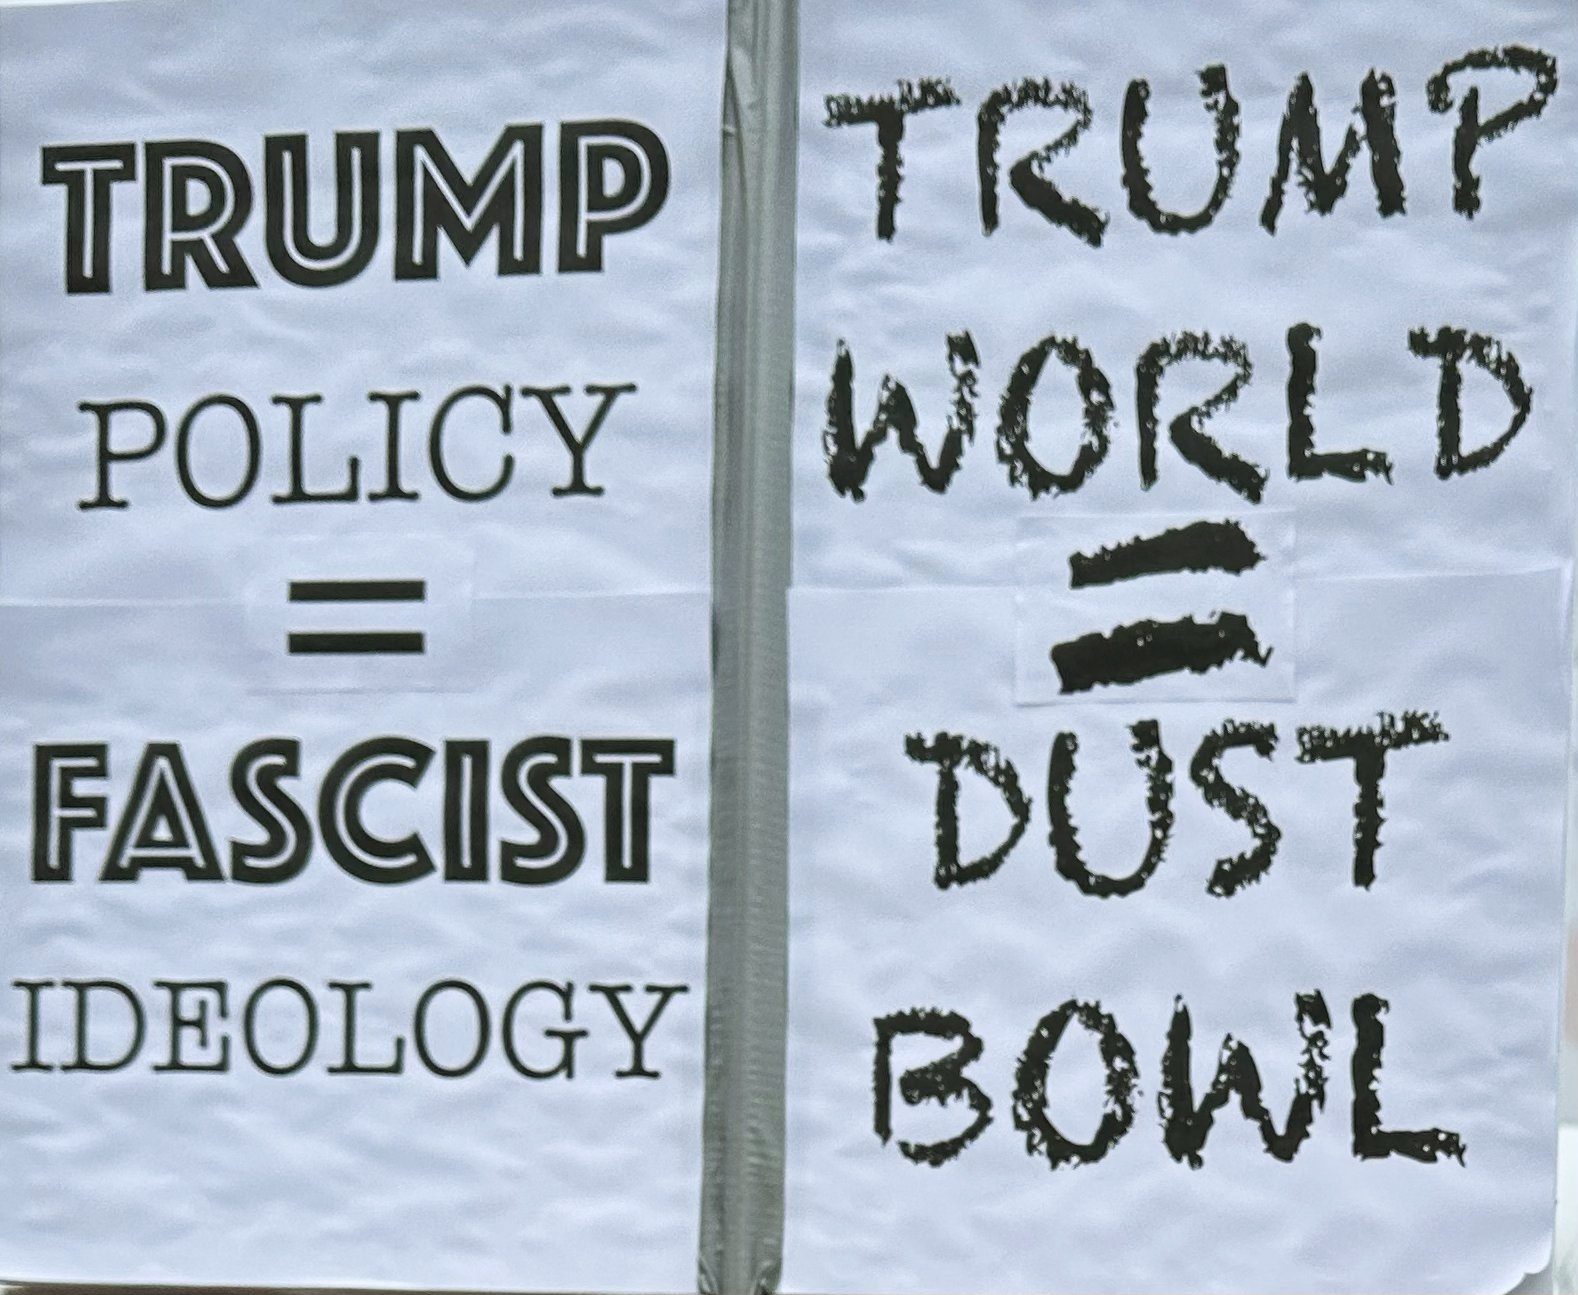 TRUMP
POLICY
=
FASCIST
IDEOLOGY
TRUMP
WORLD
=
DUST
BOWL